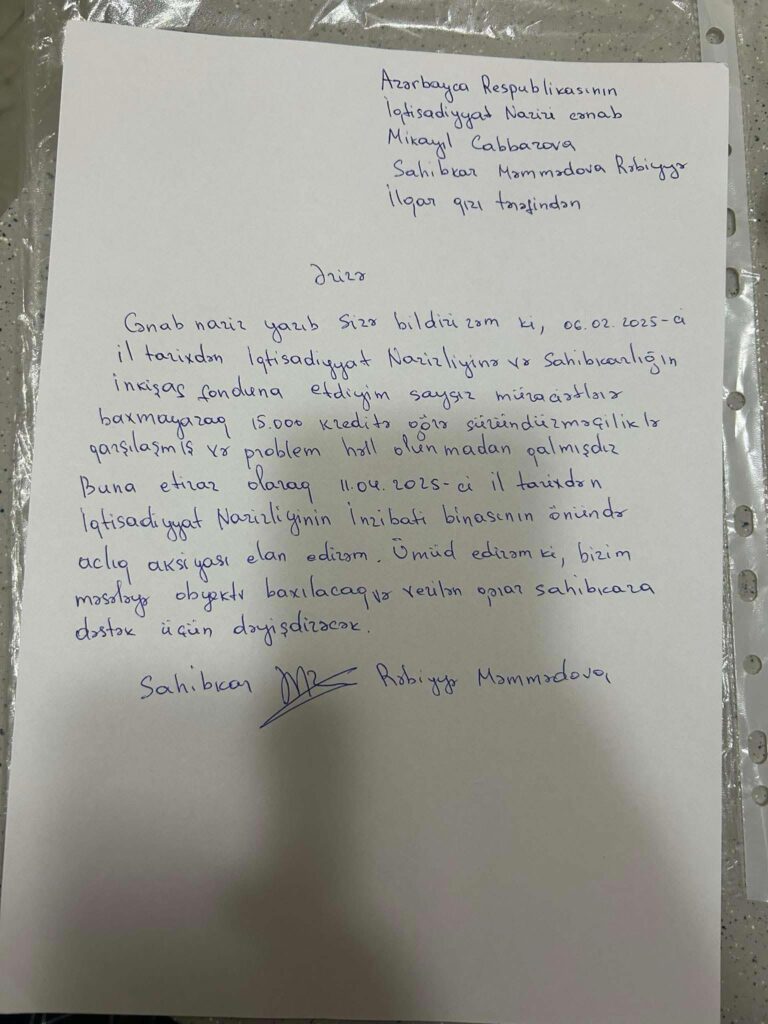 Azərbayca Respublikasının
İqtisadiyyat Naziri cənab
Mikayıl Cabbarova
Sahibkar Məmmədova Rəbiyyə
İlqar qızı tərəfindən
Ərizə
Cənab nazir yazıb Sizə bildirirəm ki, 06.02.2025-ci
il tarixdən İqtisadiyyat Nazirliyinə və Sahibkarlığın
İnkişaf fonduna etdiyim saysız müraciətlərə
baxmayaraq 15.000 kreditə öğrə süründürməçiliklə
qarşılaşmış və problem həll olunmadan qalmışdır
Buna etiraz olaraq 11.04.2025-ci il tarixdən
İqtisadiyyat Nazirliyinin İnzibati binasının önündə
aclıq aksiyası elan edirəm. Ümüd edirəm ki, bizim
məsələyə obyektv baxılacaq və verilən qərar sahibkara
dəstək üçün dəyişdirəcək.
Sahibkar Rəbiyyə Məmmədova